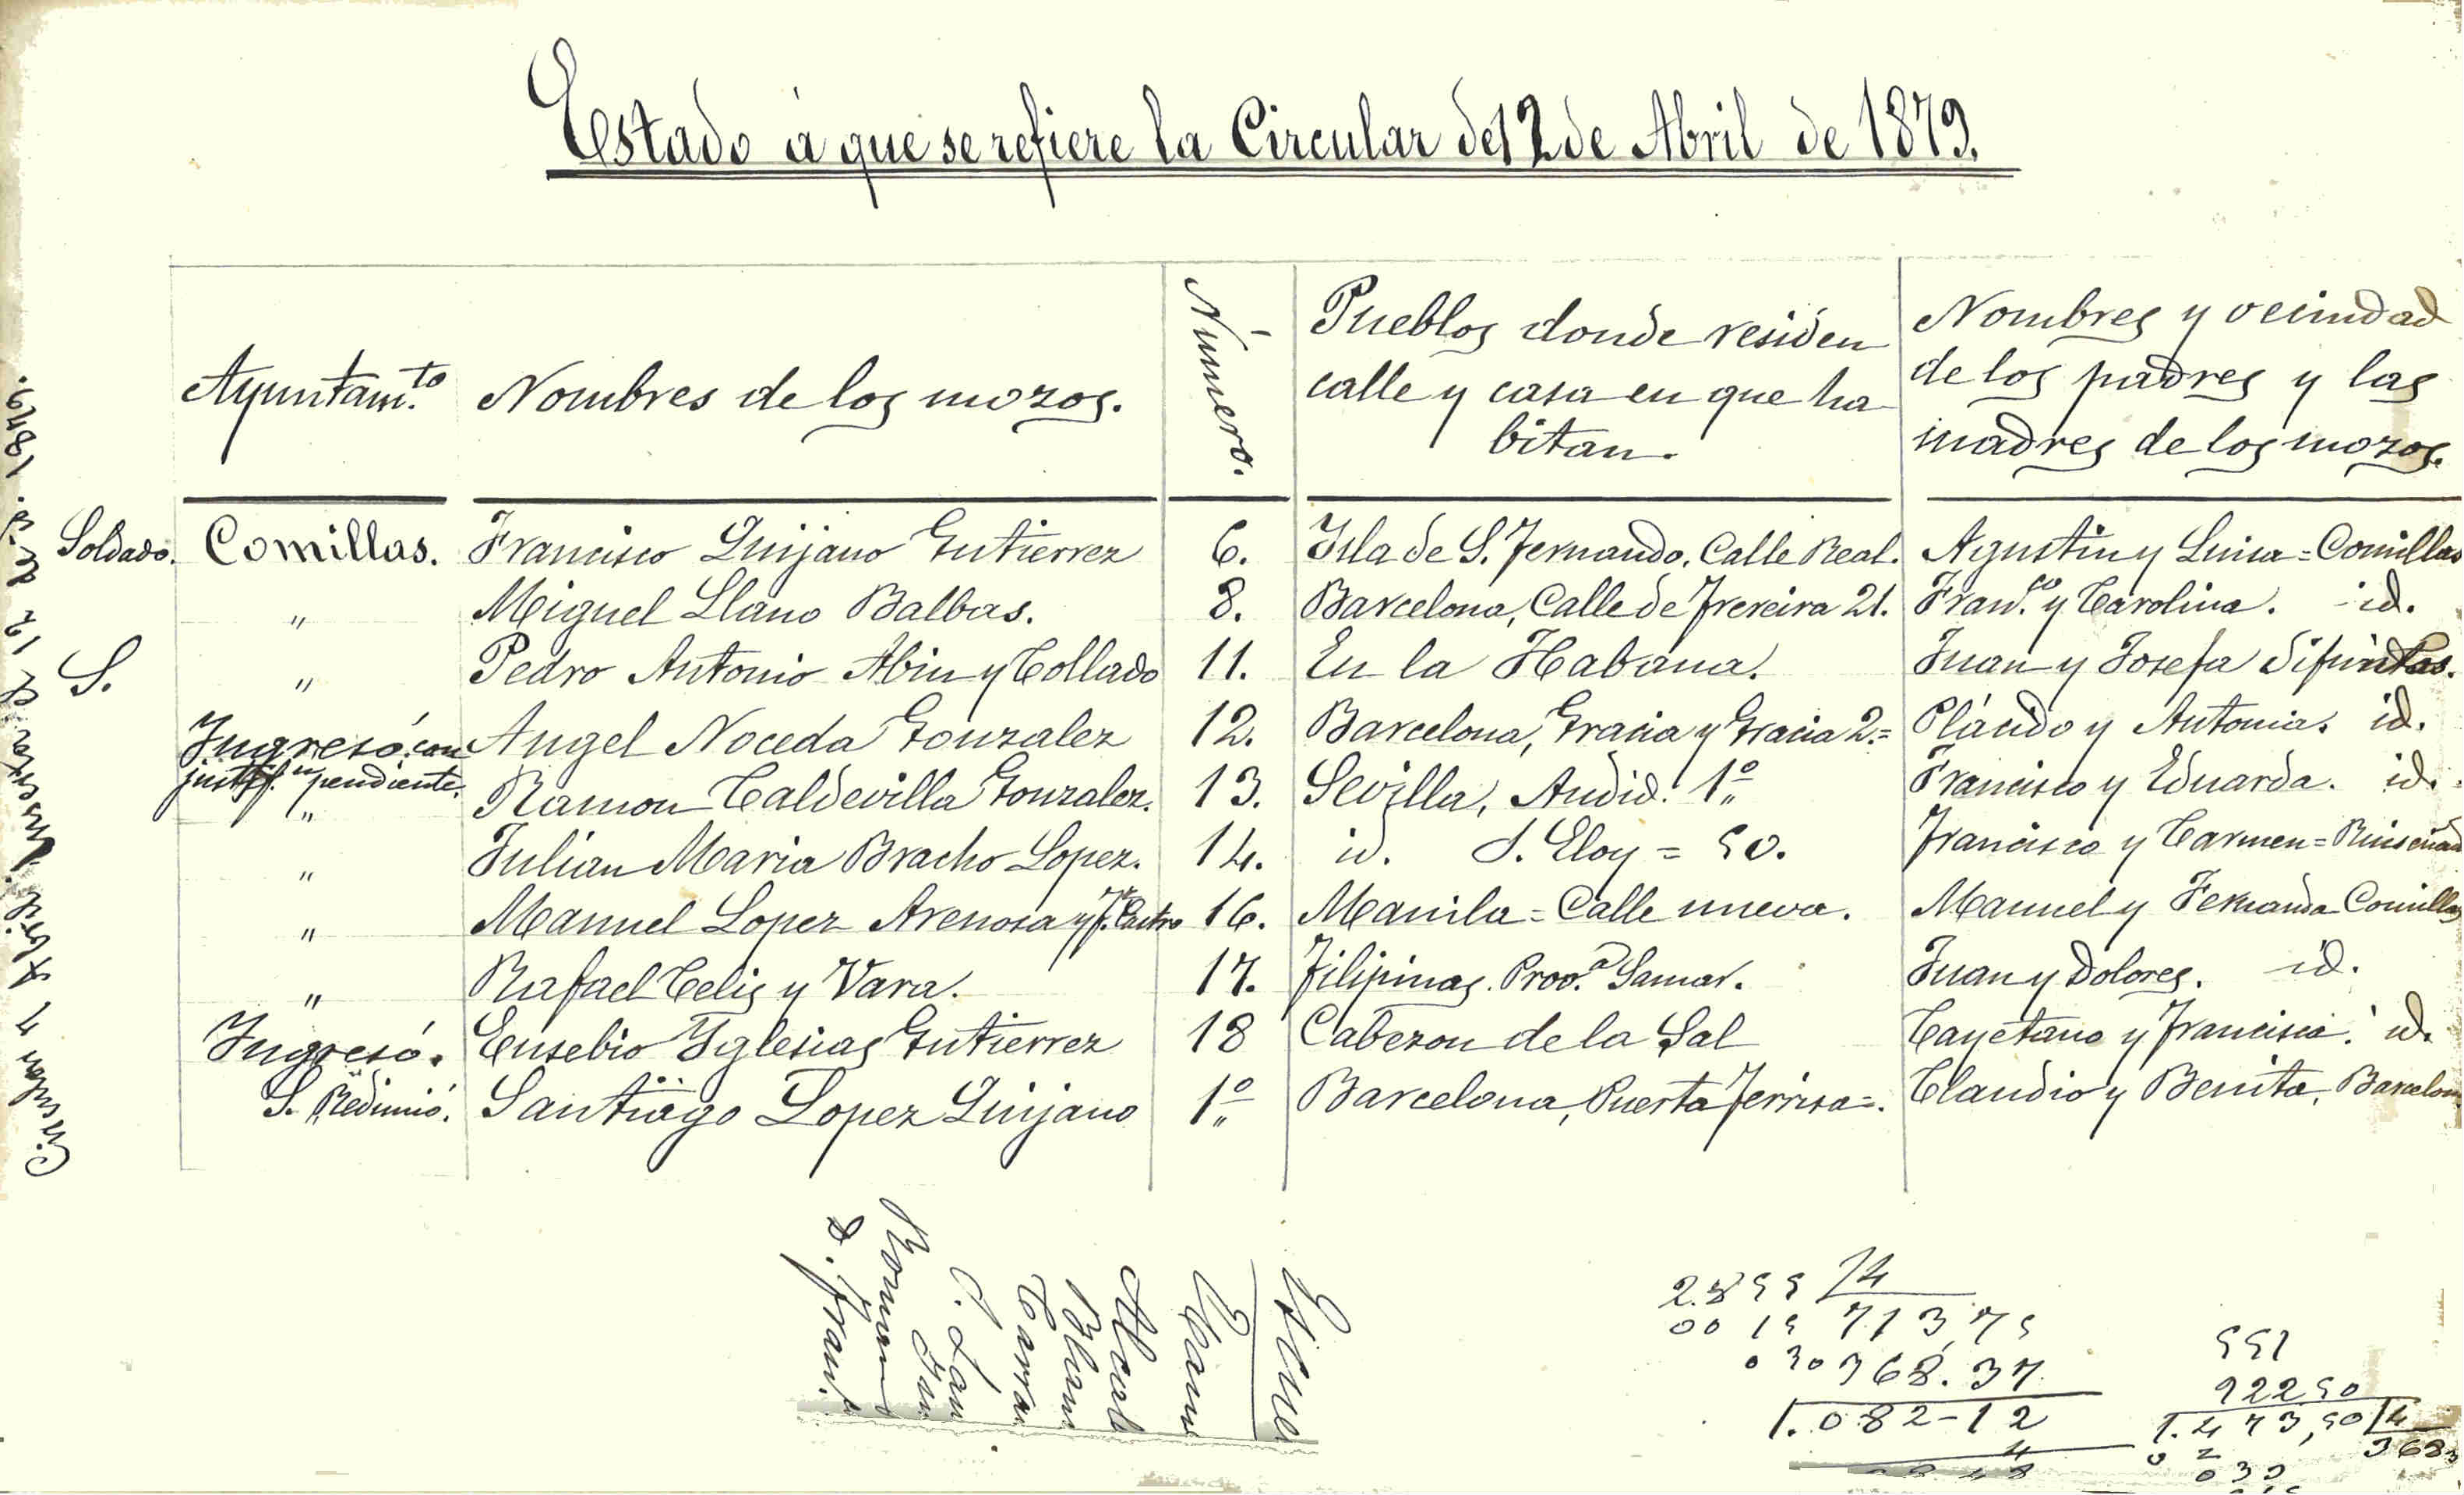 Estado á que se refiere la Circular del 2 de Abril de 1879.
Ayuntam.to
Nombres de los mozos.
Número.
Pueblos donde residen
calle y casa en que ha
bitan.
Nombres y vecindad
de los padres y las
madres de los mozos.
Soldado. Comillas. Francisco Quijano Gutierrez 6. Isla de S. Fernando. Calle Real. Agustin y Luisa = Comillas
" Miguel Llano Balbas. 8. Barcelona, Calle de 21. Fran.co y Carolina. id.
S. " Pedro Antonio Abin y Collado 11. En la Habana. Juan y Josefa difuntos.
Ingresó con Angel Noceda Gonzalez 12. Barcelona, Gracia y Gracia 2.= Plácido y Antonia. id.
justif.n pendiente.
" Ramon Caldevilla Gonzalez. 13. Sevilla, Audid.ª 1º Francisco y Eduarda. id.
" Julian Maria Bracho Lopez. 14. id. S. Eloy = 50. Francisco y Carmen = Ruiseñad
" Manuel Lopez Arenosa y F. Castro 16. Manila = Calle nueva. Manuel y Fernanda Comillas
" Rafael Celis y Vara. 17. Filipinas. Prov.a Samar. Juan y Dolores. id.
Ingresó. Eusebio Yglesias Gutierrez 18 Cabezon de la Sal Cayetano y Francisca. id.
S. Redimió. Santiago Lopez Quijano 1º Barcelona, Puerta Ferrisa =. Claudio y Benita, Barcelon
Circular 4 Abril, inserta 12 de id. 1879.
D. Fran
Roman
S. Lan
Carra
Blan
Abeal
2.855 4
00 15 713,75
030 368.37
1.082-12
4
551
92250
1.473,50 4
02 3683
030